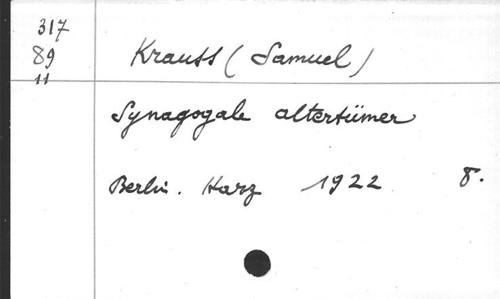 317
89
11
Krauss (Samuel)
Synagogale altertümer
Berlin. Harz 1922 8.